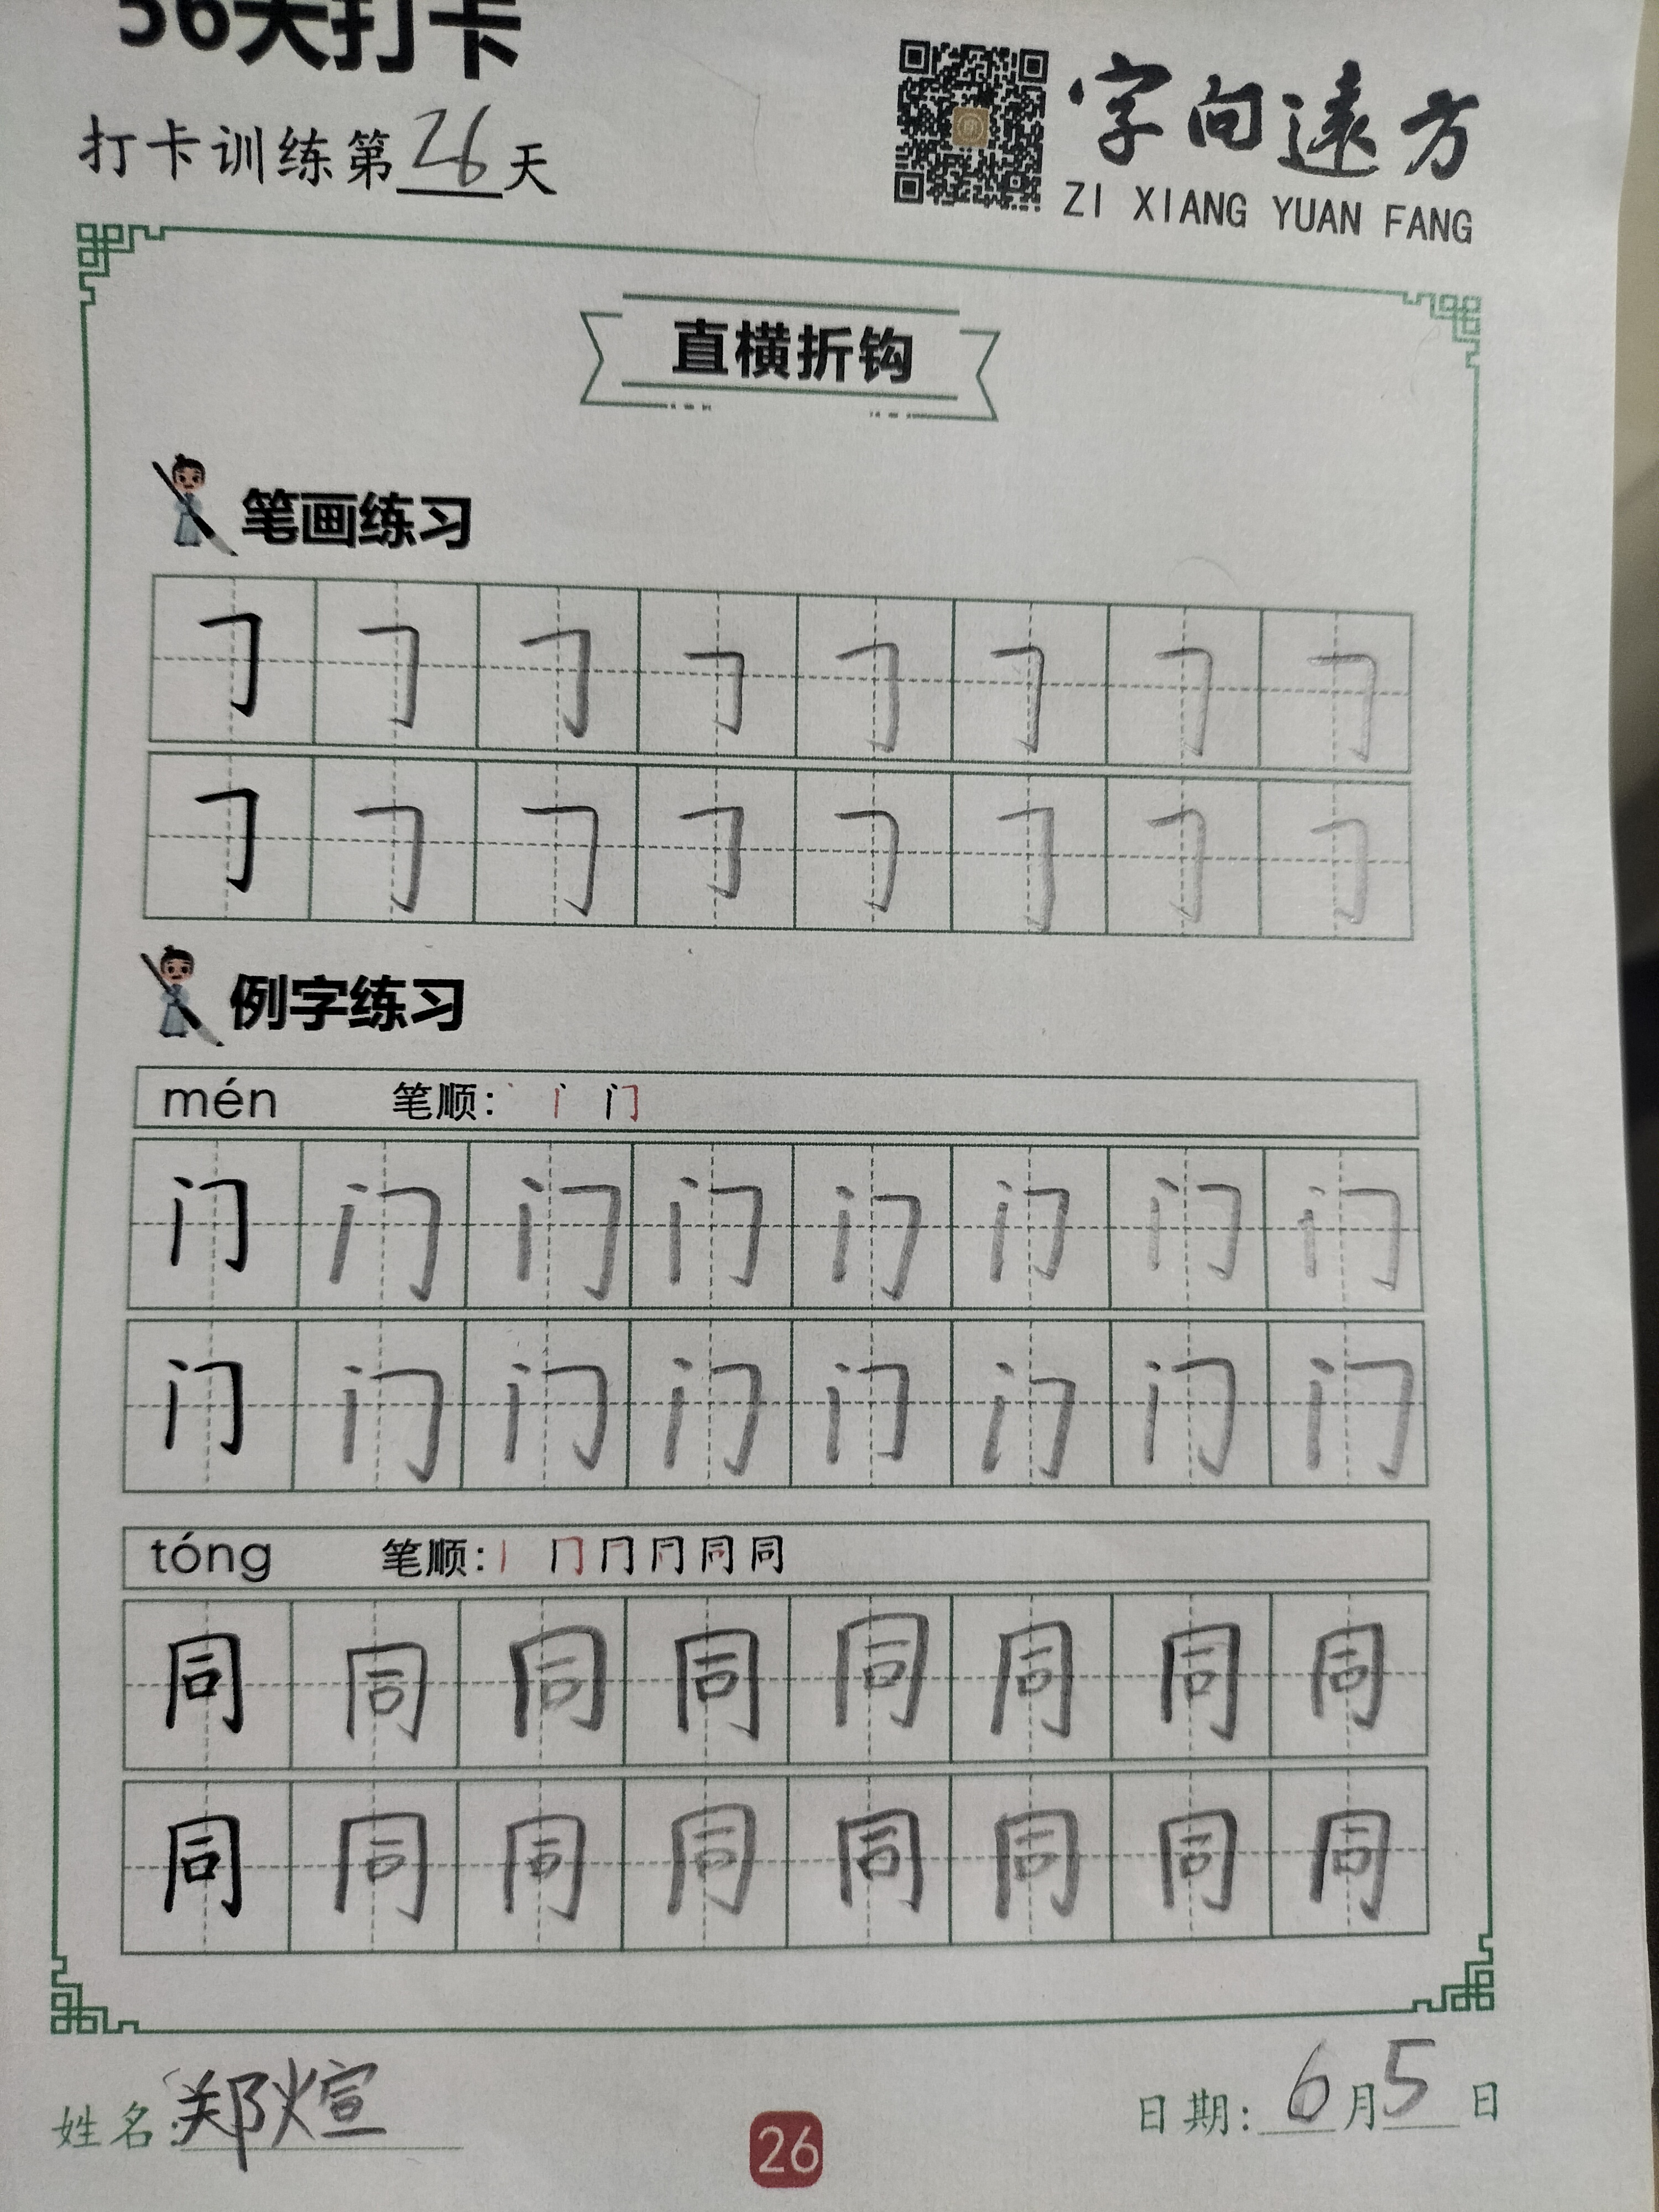 56天打卡
打卡训练第26天
字向遠方
ZI XIANG YUAN FANG
直横折钩
笔画练习
𠃌 𠃌 𠃌 𠃌 𠃌 𠃌 𠃌 𠃌
𠃌 𠃌 𠃌 𠃌 𠃌 𠃌 𠃌 𠃌
例字练习
mén 笔顺: 丶 门
门 门 门 门 门 门 门 门
门 门 门 门 门 门 门 门
tóng 笔顺: 丨 冂 同
同 同 同 同 同 同 同 同
同 同 同 同 同 同 同 同
姓名:郑煊
日期: 6月5日
26